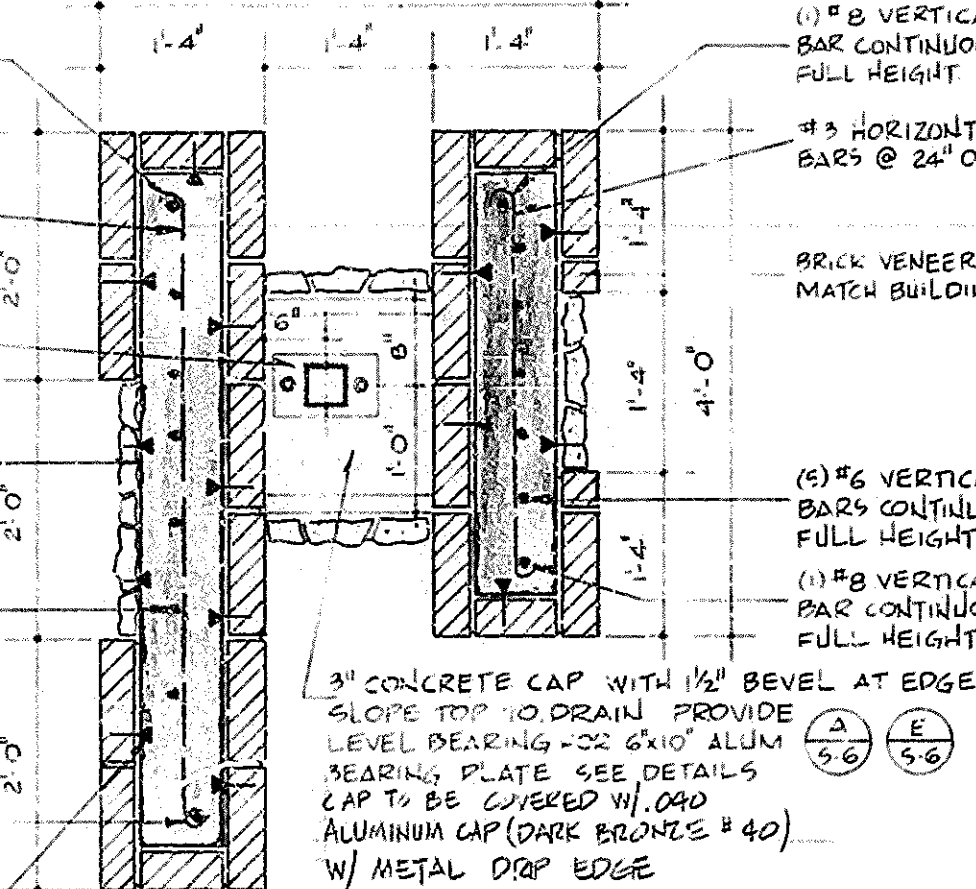 1'-4"
1'-4"
1'-4"
(1) #8 VERTICA
BAR CONTINUO
FULL HEIGHT
#3 HORIZONT
BARS @ 24" O
BRICK VENEER
MATCH BUILDIN
2'-0"
2'-0"
2'-0"
6"
8"
1'-0"
1'-4"
1'-4"
1'-4"
4'-0"
(5) #6 VERTICA
BARS CONTINU
FULL HEIGHT
(1) #8 VERTICA
BAR CONTINUO
FULL HEIGHT
3" CONCRETE CAP WITH 1½" BEVEL AT EDGE
SLOPE TOP TO DRAIN PROVIDE
LEVEL BEARING FOR 6"x10" ALUM
BEARING PLATE SEE DETAILS
CAP TO BE COVERED W/.040
ALUMINUM CAP (DARK BRONZE #40)
W/ METAL DRIP EDGE
A
S-6
E
S-6